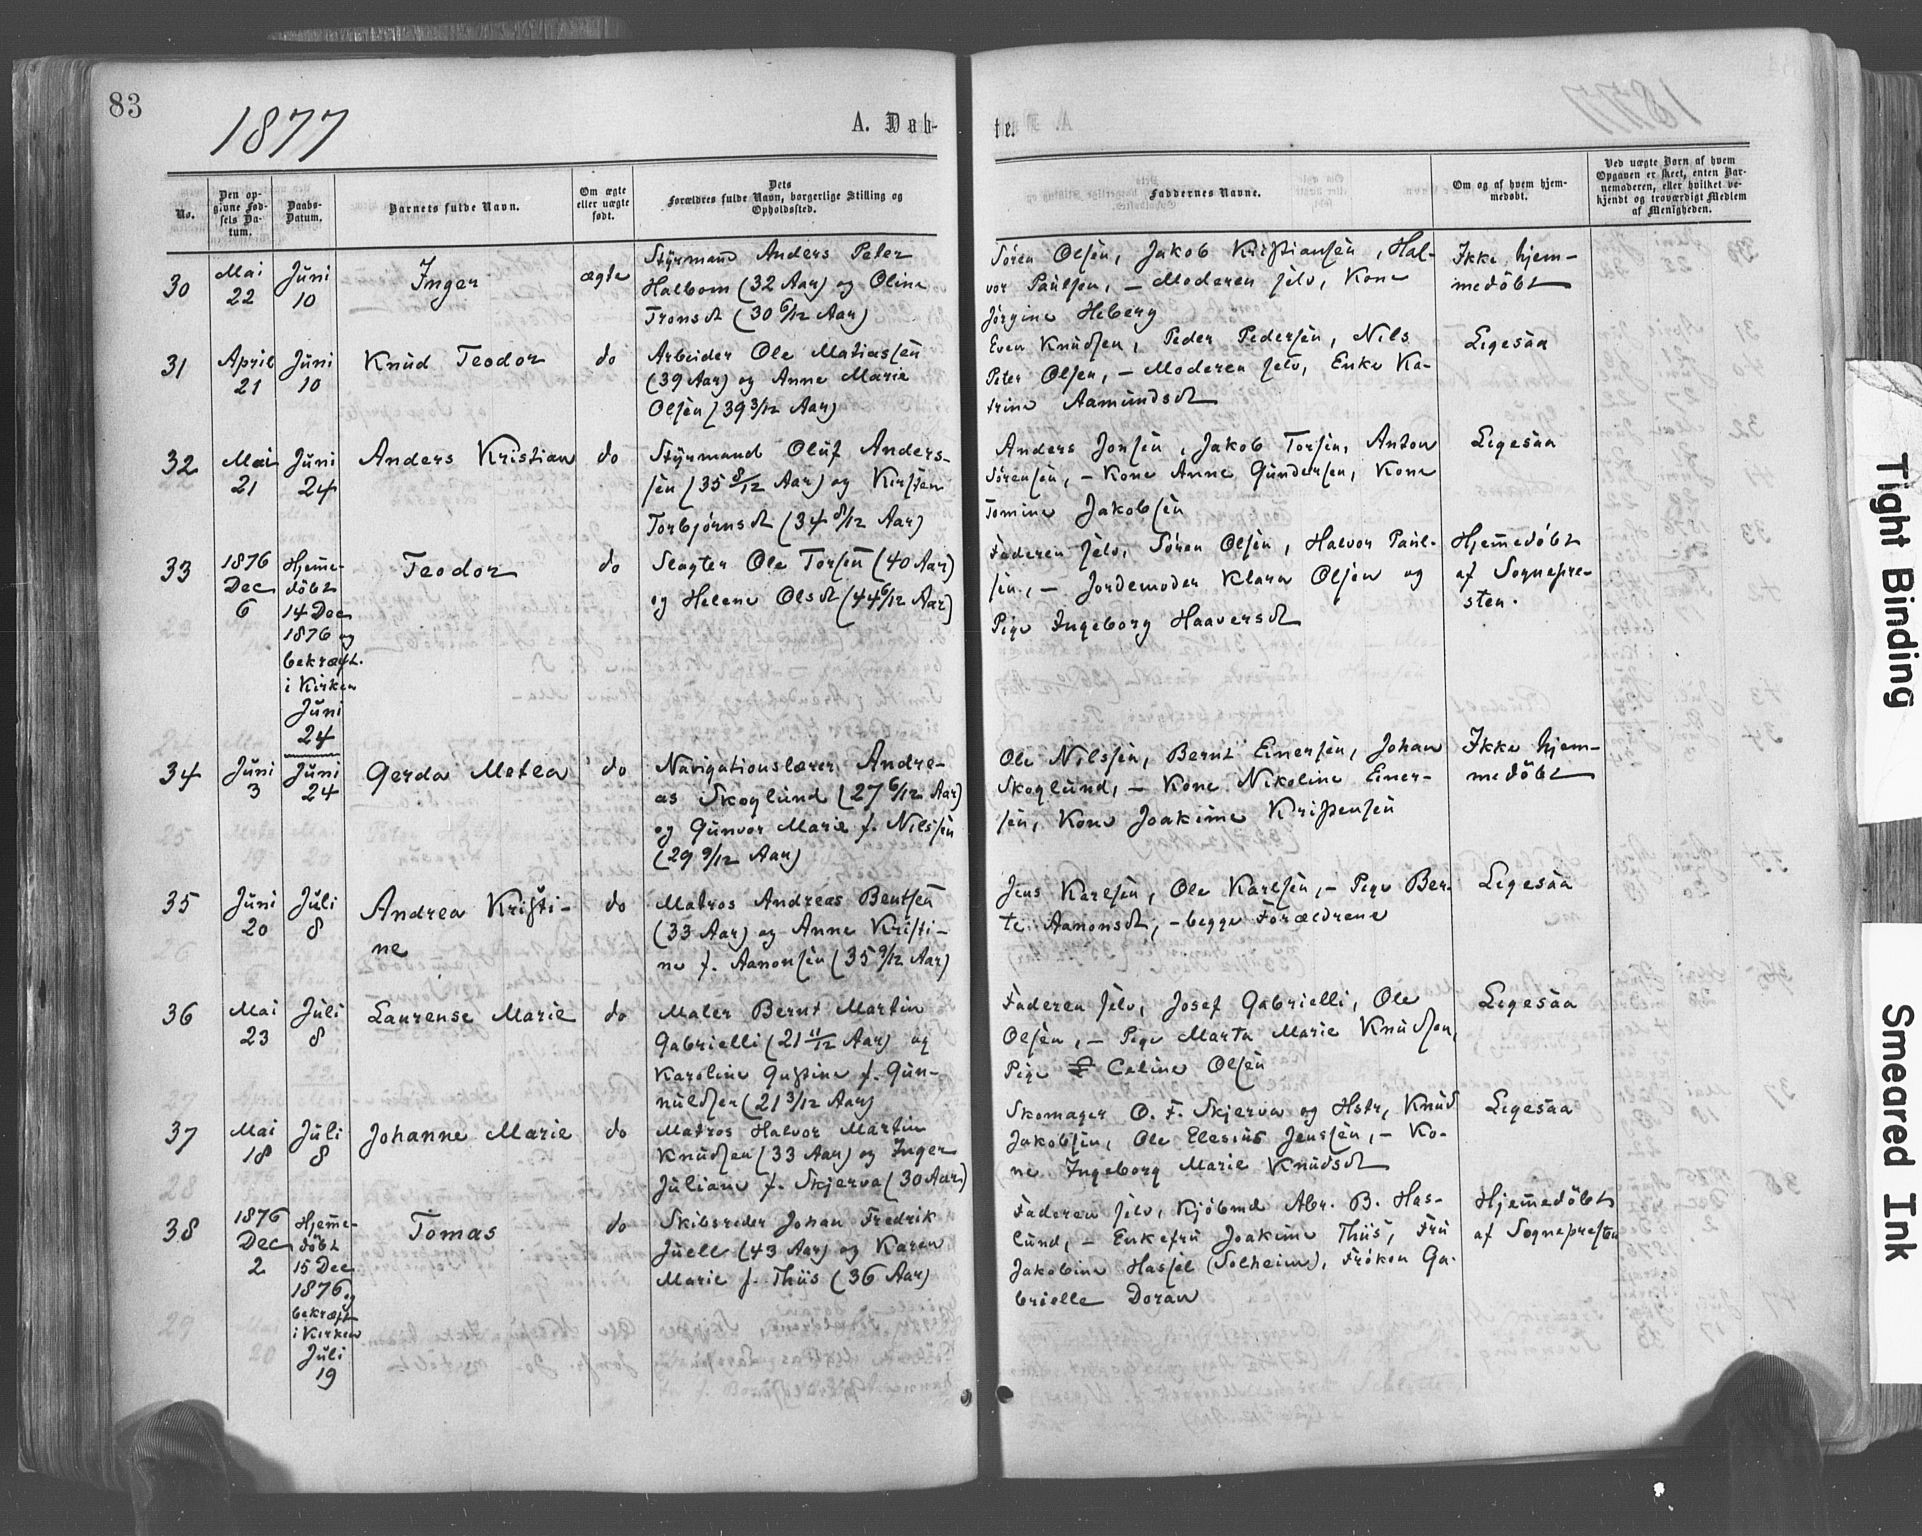 83
1877
A. Døb-
te.
No.
Den op-
givne Fød-
sels Da-
tum.
Daabs-
Datum.
Barnets fulde Navn.
Om ægte
eller uægte
født.
Dets
Forældres fulde Navn, borgerlige Stilling og
Opholdssted.
Faddernes Navne.
Om og af hvem hjem-
medøbt.
Ved uægte Børn af hvem
Opgaven er skeet, enten Bar-
nemoderen, eller hvilket be-
kjendt og troværdigt Medlem
af Menigheden.
30
Mai
22
Juni
10
Inger
ægte
Styrmand Anders Peter
Halbom (32 Aar) og Oline
Tronsdt (30 6/12 Aar)
Søren Olsen, Jakob Kristiansen, Hal-
vor Paulsen, — Moderen selv, Kone
Jørgine Heberg
Ikke hjem-
medøbt
31
April
21
Juni
10
Knud Teodor
do
Arbeider Ole Matiassen
(39 Aar) og Anne Marie
Olsen (39 3/12 Aar)
Even Knudsen, Peder Pedersen, Nils
Peter Olsen, — Moderen selv, Enke Ka-
trine Aamundsdt
Ligesaa
32
Mai
21
Juni
24
Anders Kristian
do
Styrmand Oluf Anders-
sen (35 8/12 Aar) og Kirsten
Torbjørnsdt (34 8/12 Aar)
Anders Jonsen, Jakob Torsen, Anton
Sørensen, — Kone Anne Gundersen, Kone
Tomine Jakobsen
Ligesaa
33
1876
Dec
6
Hjeme-
døbt
14 Dec
1876 og
bekræft.
i Kirken
Juni
24
Teodor
do
Slagter Ole Torsen (40 Aar)
og Helene Olsdt (44 6/12 Aar)
Faderen selv, Søren Olsen, Halvor Paul-
sen, — Jordemoder Klara Olsen og
Pige Ingeborg Haaversdt
Hjemedøbt
af Sognepre-
sten.
34
Juni
3
Juni
24
Gerda Metea
do
Navigationslærer Andre-
as Skoglund (27 6/12 Aar)
og Gunvor Marie f. Nilssen
(29 9/12 Aar)
Ole Nilssen, Bernt Einersen, Johan
Skoglund, — Kone Nikoline Einer-
sen, Kone Joakime Kristensen
Ikke hjem-
medøbt
35
Juni
20
Juli
8
Andrea Kristi-
ne
do
Matros Andreas Bentsen
(33 Aar) og Anne Kristi-
ne f. Aanonsen (35 9/12 Aar)
Jens Karlsen, Ole Karlsen, — Pige Ber-
te Aanonsdt, — begge Forældrene
Ligesaa
36
Mai
23
Juli
8
Laurense Marie
do
Maler Bernt Martin
Gabrielli (21 11/12 Aar) og
Karoline Gustine f. Gun-
nuldsen (21 3/12 Aar)
Faderen selv, Josef Gabrielli, Ole
Olsen, — Pige Marta Marie Knudsen,
Pige Celine Olsen
Ligesaa
37
Mai
18
Juli
8
Johanne Marie
do
Matros Halvor Martin
Knudsen (33 Aar) og Inger
Juliane f. Skjerva (30 Aar)
Skomager O. F. Skjerva og Hstr, Knud
Jakobsen, Ole Elesius Jenssen, — Ko-
ne Ingeborg Marie Knudsdt
Ligesaa
38
1876
Dec
2
Hjeme-
døbt
15 Dec
1876 og
bekræft
i Kirken
Juli
19
Tomas
do
Skibsreder Johan Fredrik
Juell (43 Aar) og Karen
Marie f. Thiis (36 Aar)
Faderen selv, Kjøbmd Abr. B. Has-
lund, — Enkefru Joakime Thiis, Fru
Jakobine Hassel (Solheim), Frøken Ga-
brielle Doran
Hjemedøbt
af Sognepresten
Tight Binding
Smeared Ink